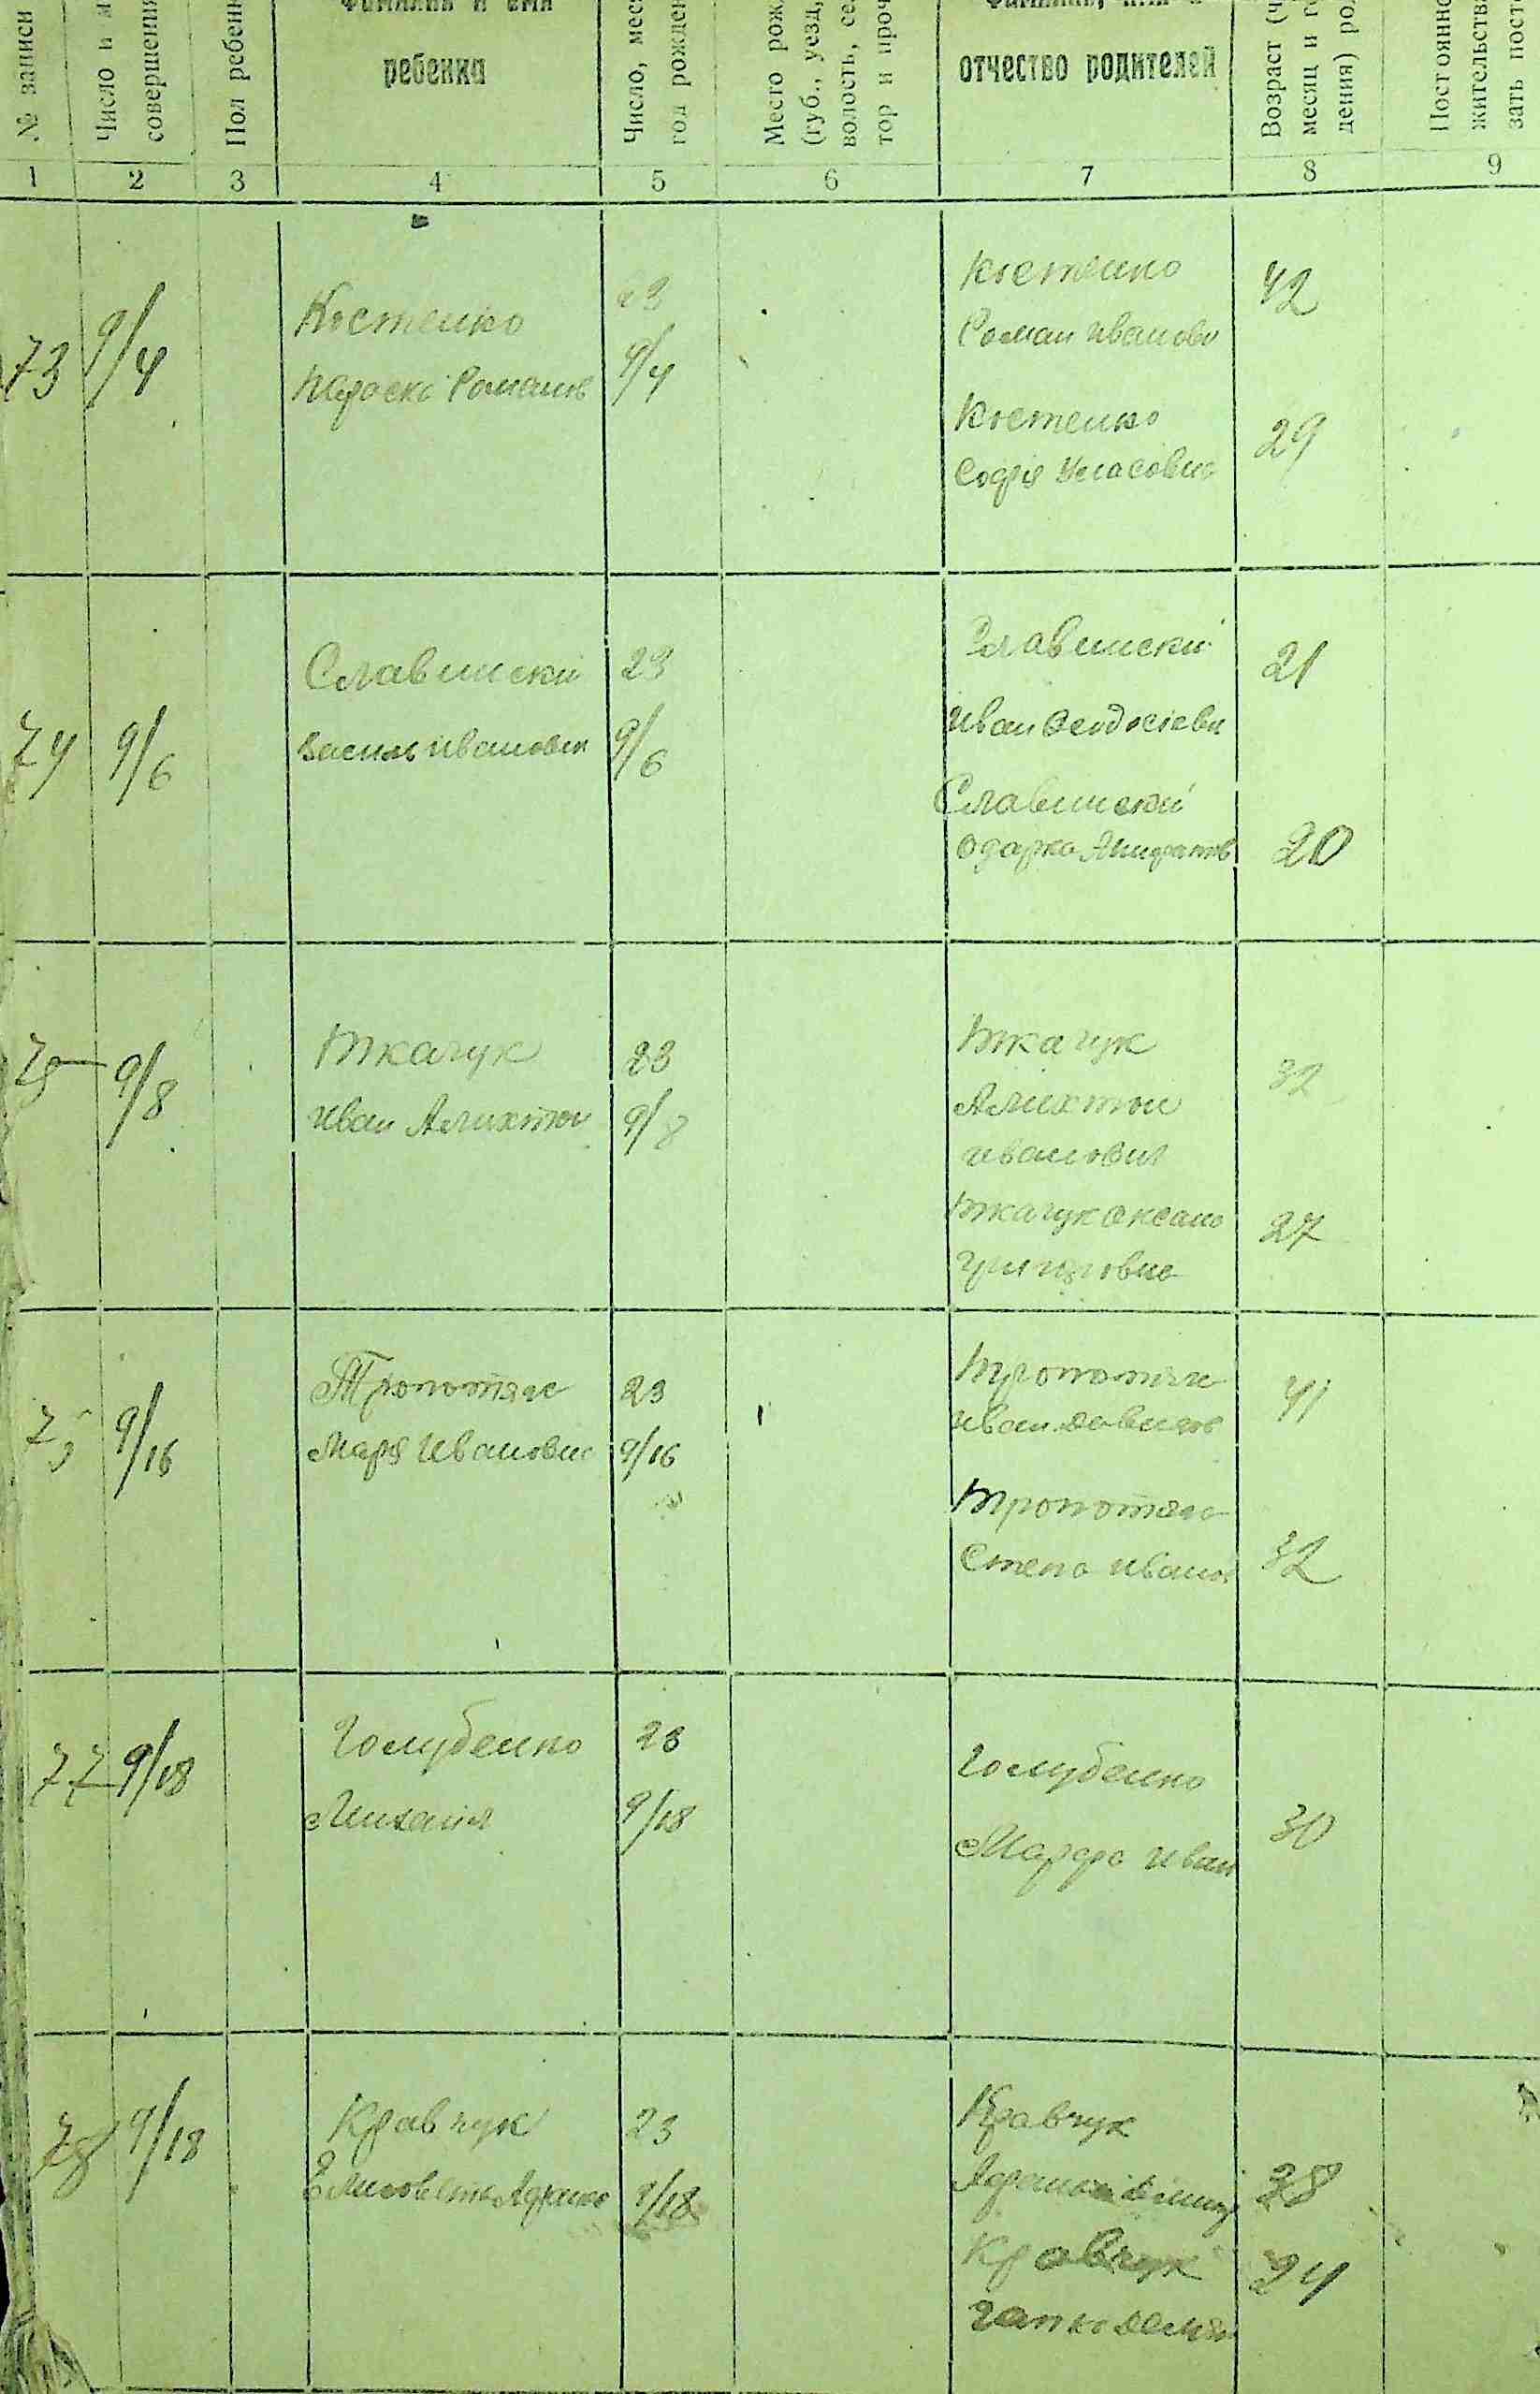 № записи
Число и м
совершения
Пол ребенк
Фамилия и имя
ребенка
Число, мес
год рожден
Место рож
(губ., уезд,
волость, се
тор и проч
Фамилия, имя
отчество родителей
Возраст (ч
месяц и го
дения) ро
Постоянно
жительств
зать пост
1 2 3 4 5 6 7 8 9
73 9/4
Костенко
Параск Романов
23
9/4
Костенко
Роман Иванови
42
Костенко
Софія Уласовна
29
74 9/6
Славински
Василь Иванович
23
9/6
Славинский
Иван Феодосієви
21
Славинский
Одарка
20
75 9/8
Ткачук
Иван
23
9/8
Ткачук
Иванович
32
Ткачук Оксана
Григоровна
27
9/16
Тропотяг
Марія Ивановна
23
9/16
Тропотяг
Иван Давидов
41
Тропотяг
Степа Иванов
32
77 9/18
Голубенко
Михаил
23
9/18
Голубенко
Марфа Иван
30
78 9/18
Кравчук
23
9/18
Кравчук
28
Кравчук
24
Гапка Демян